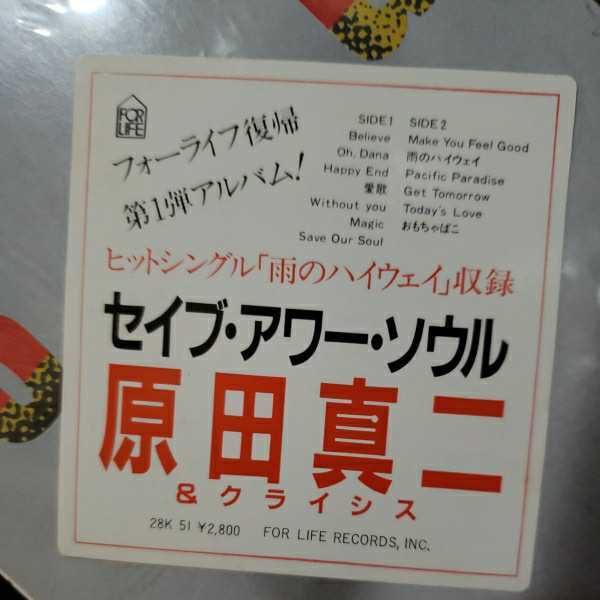 FOR
LIFE
フォーライフ復帰
第1弾アルバム!
SIDE1
Believe
Oh, Dana
Happy End
愛歌
Without you
Magic
Save Our Soul
SIDE2
Make You Feel Good
雨のハイウェイ
Pacific Paradise
Get Tomorrow
Today's Love
おもちゃばこ
ヒットシングル「雨のハイウェイ」収録
セイブ・アワー・ソウル
原田真二
&クライシス
28K 51 ¥2,800 FOR LIFE RECORDS, INC.